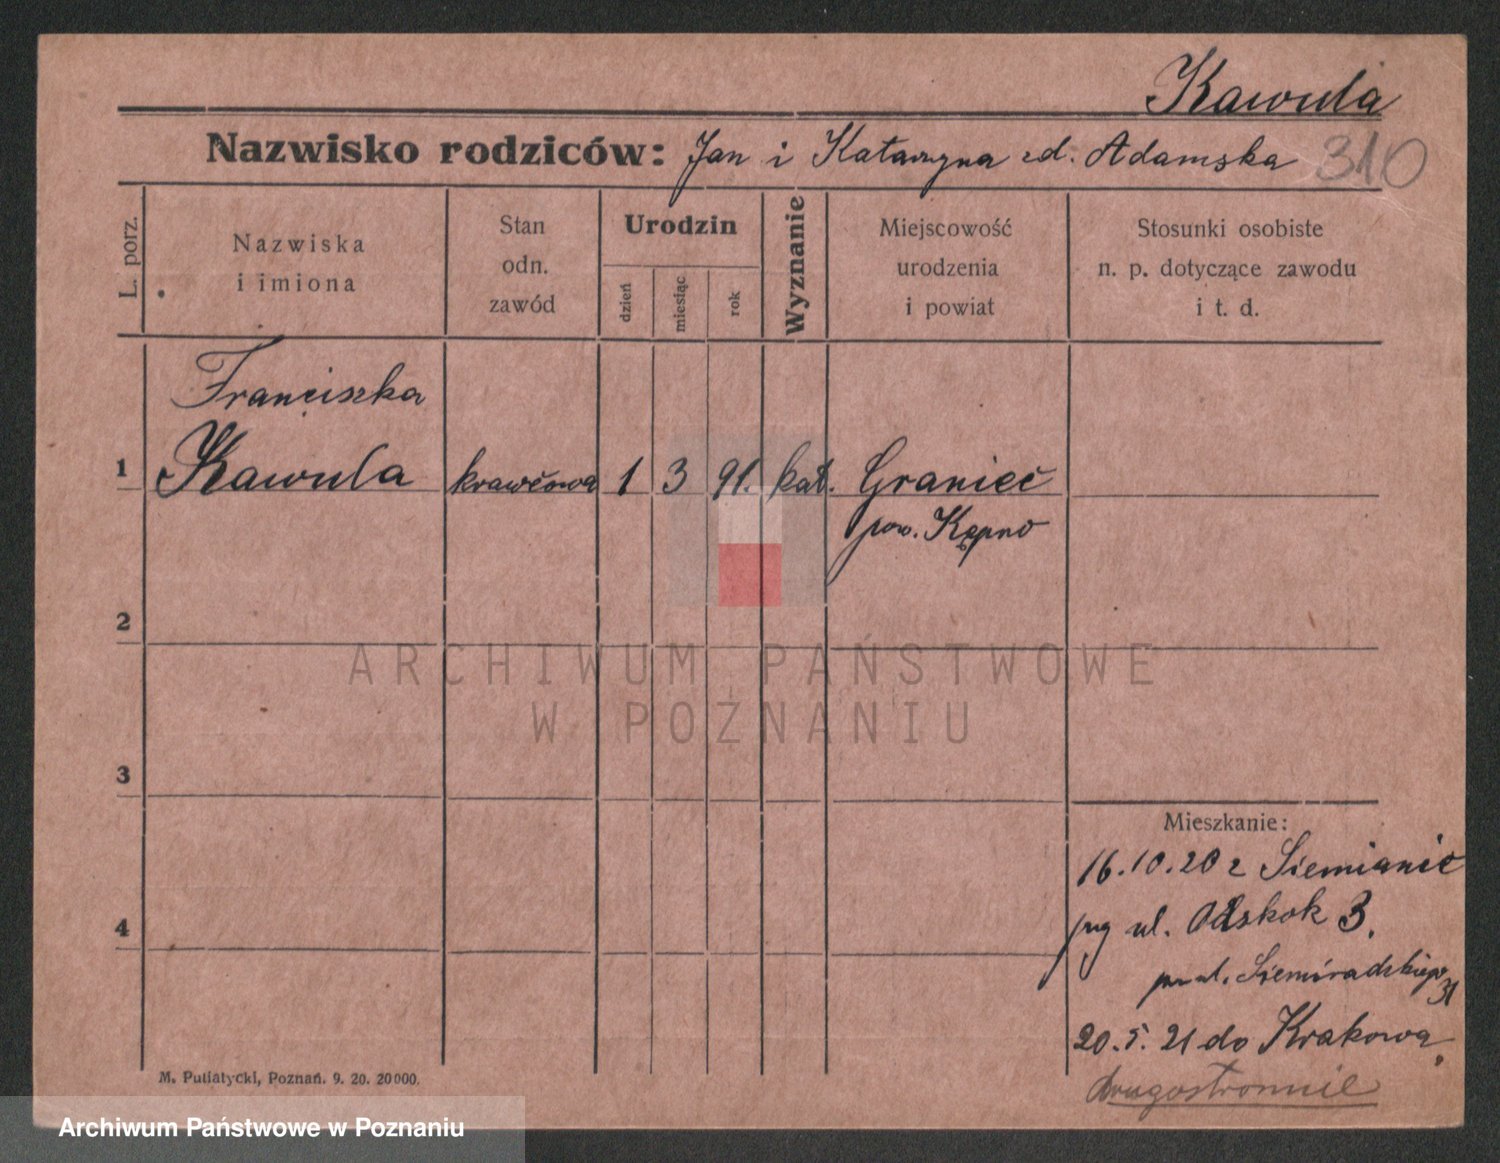 Kawula
Nazwisko rodziców: Jan i Katarzyna zd. Adamska 310
L. porz.
Nazwiska
i imiona
Stan
odn.
zawód
Urodzin
dzień
miesiąc
rok
Wyznanie
Miejscowość
urodzenia
i powiat
Stosunki osobiste
n. p. dotyczące zawodu
i t. d.
Franciszka
1 Kawula krawcowa 1 3 91. kat. Granieć
pow. Kępno
2
ARCHIWUM PAŃSTWOWE
W POZNANIU
3
Mieszkanie:
16.10.20 z Siemianic
ul. 3.
ul. Siemiradzkiego
31
4
20.5.21 do Krakowa
drugostronnie
M. Putiatycki, Poznań. 9. 20. 20000.
Archiwum Państwowe w Poznaniu